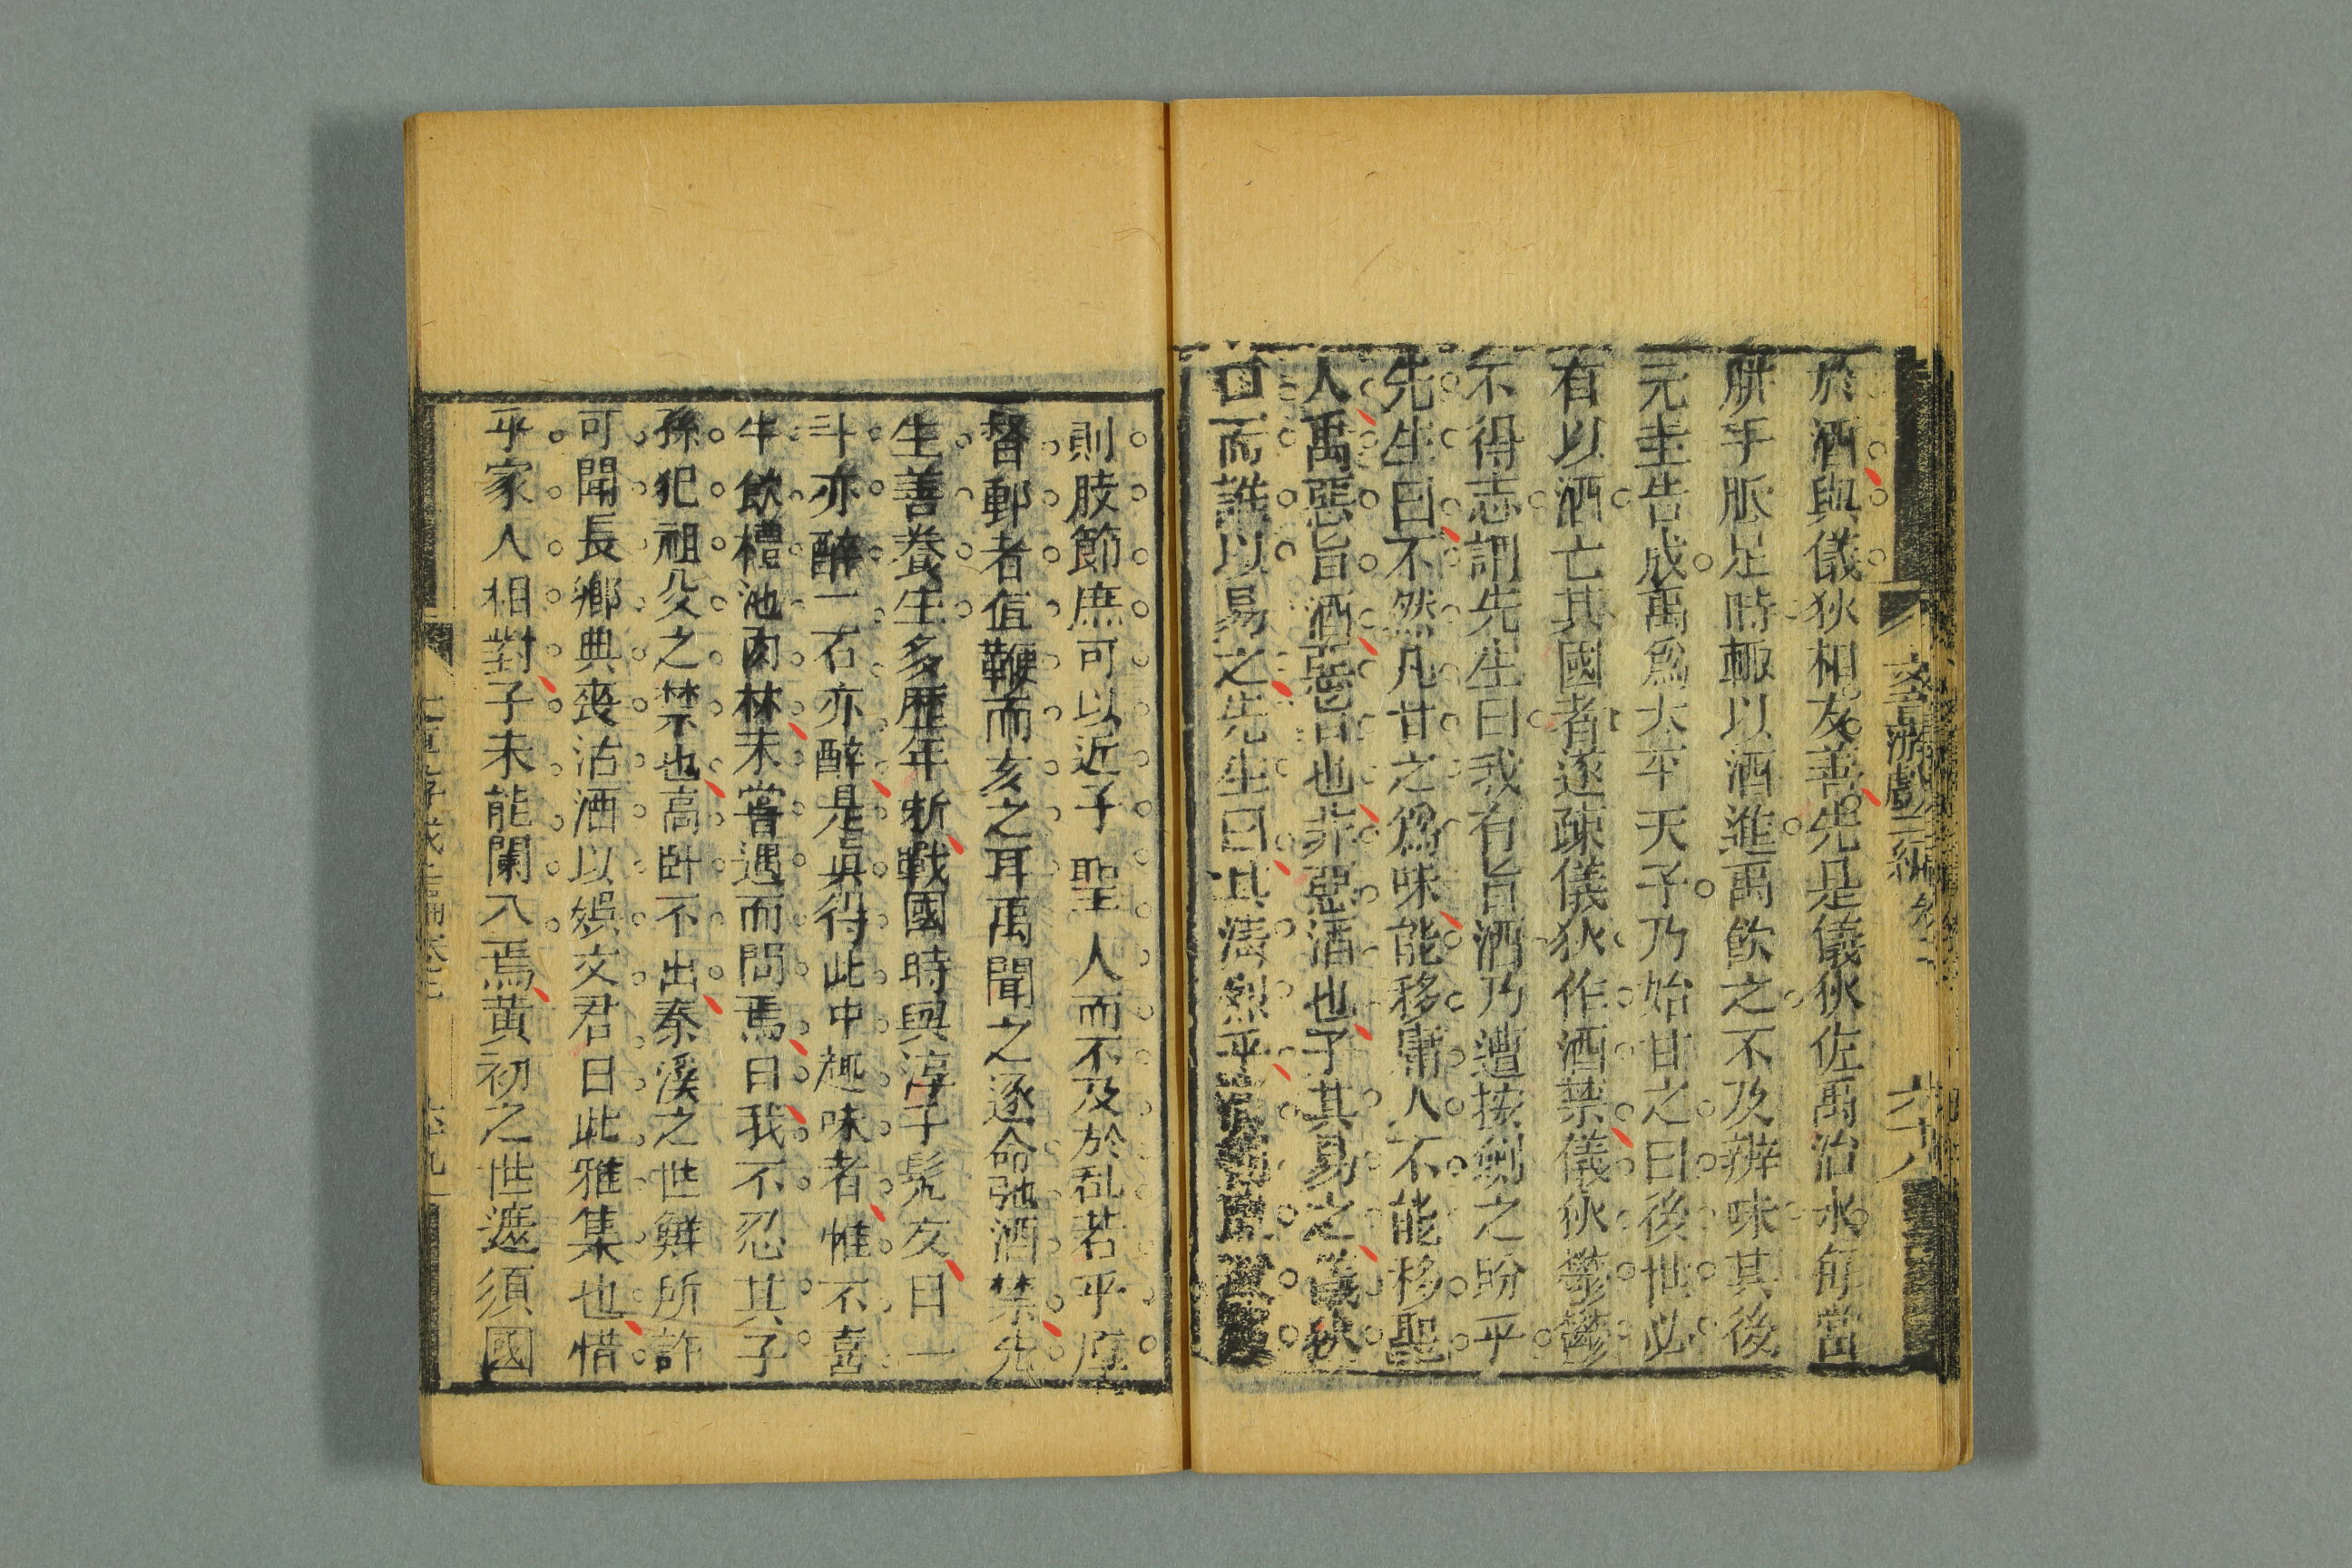 於酒與儀狄相友善先是儀狄佐禹治水每當
胼手胝足時輒以酒進禹飲之不及辨味其後
元圭告成禹爲太平天子乃始甘之曰後世必
有以酒亡其國者遂疎儀狄作酒禁儀狄鬱鬱
不得志訓先生曰我有旨酒乃遭按劍之盼乎
先生曰不然凡甘之爲味能移庸人不能移聖
人禹惡旨酒惡旨也非惡酒也子其易之儀狄
曰而誥以易之先生曰其淸烈乎
文章游戲三編卷 六十八
則肢節庶可以近子聖人而不及於乱若乎
督郵者値鞭而亥之耳禹聞之逐命弛酒禁先
生善養生多歷年斬戰國時與淳于髠友日一
斗亦醉一石亦醉是眞得此中趣味者惟不喜
牛飲槽池肉林未嘗遇而問焉曰我不忍其子
孫犯祖父之禁也高卧不出秦溪之世鮮所許
可聞長鄉典喪沽酒以娛文君日此雅集也惜
乎家人相對子未能闌入焉黃初之世遞須國